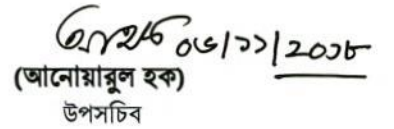 ০৬/১১/২০১৮
(আনোয়ারুল হক)
উপসচিব